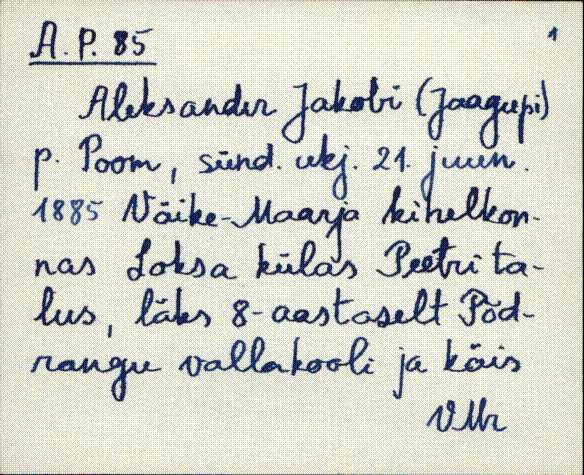 A. P. 85
1
Aleksander Jakobi (Jaagupi)
p. Poom, sünd. ukj. 21. juun.
1885 Väike-Maarja kihelkon-
nas Loksa külas Peetri ta-
lus, läks 8-aastaselt Põd-
rangu vallakooli ja käis
VMr